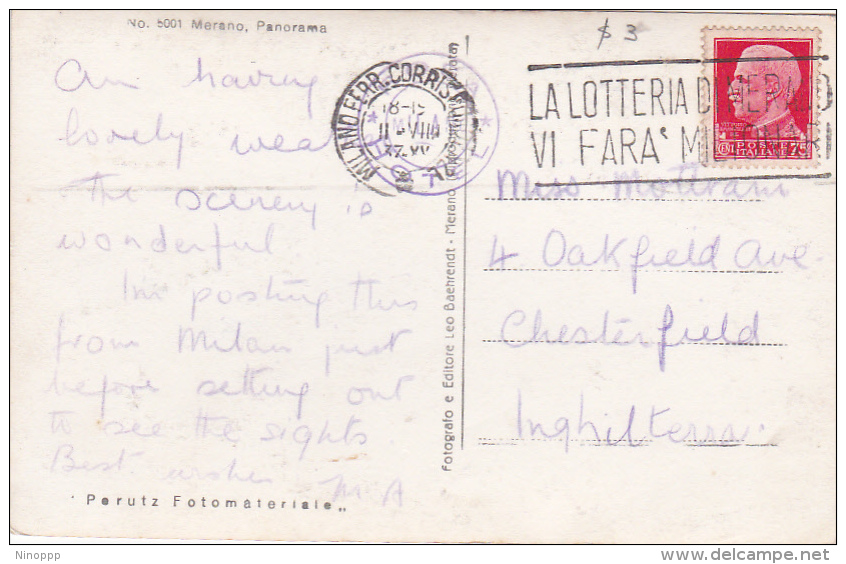 No. 5001 Merano, Panorama
$ 3
Am having
lovely
the scenery is
wonderful
Im posting this
from Milan just
before setting out
to see the sights
Best wishes M A
" Perutz Fotomateriale "
Fotografo e Editore Leo Baehrendt - Merano
MILANO FERR. CORRISP.
18-19
II-VIII
37-XV
LA LOTTERIA DI MERANO
VI FARA' MILIONARI
POSTE
ITALIANE 75
Miss Mottram
4 Oakfield Ave.
Chesterfield
Inghilterra.
Ninoppp
www.delcampe.net